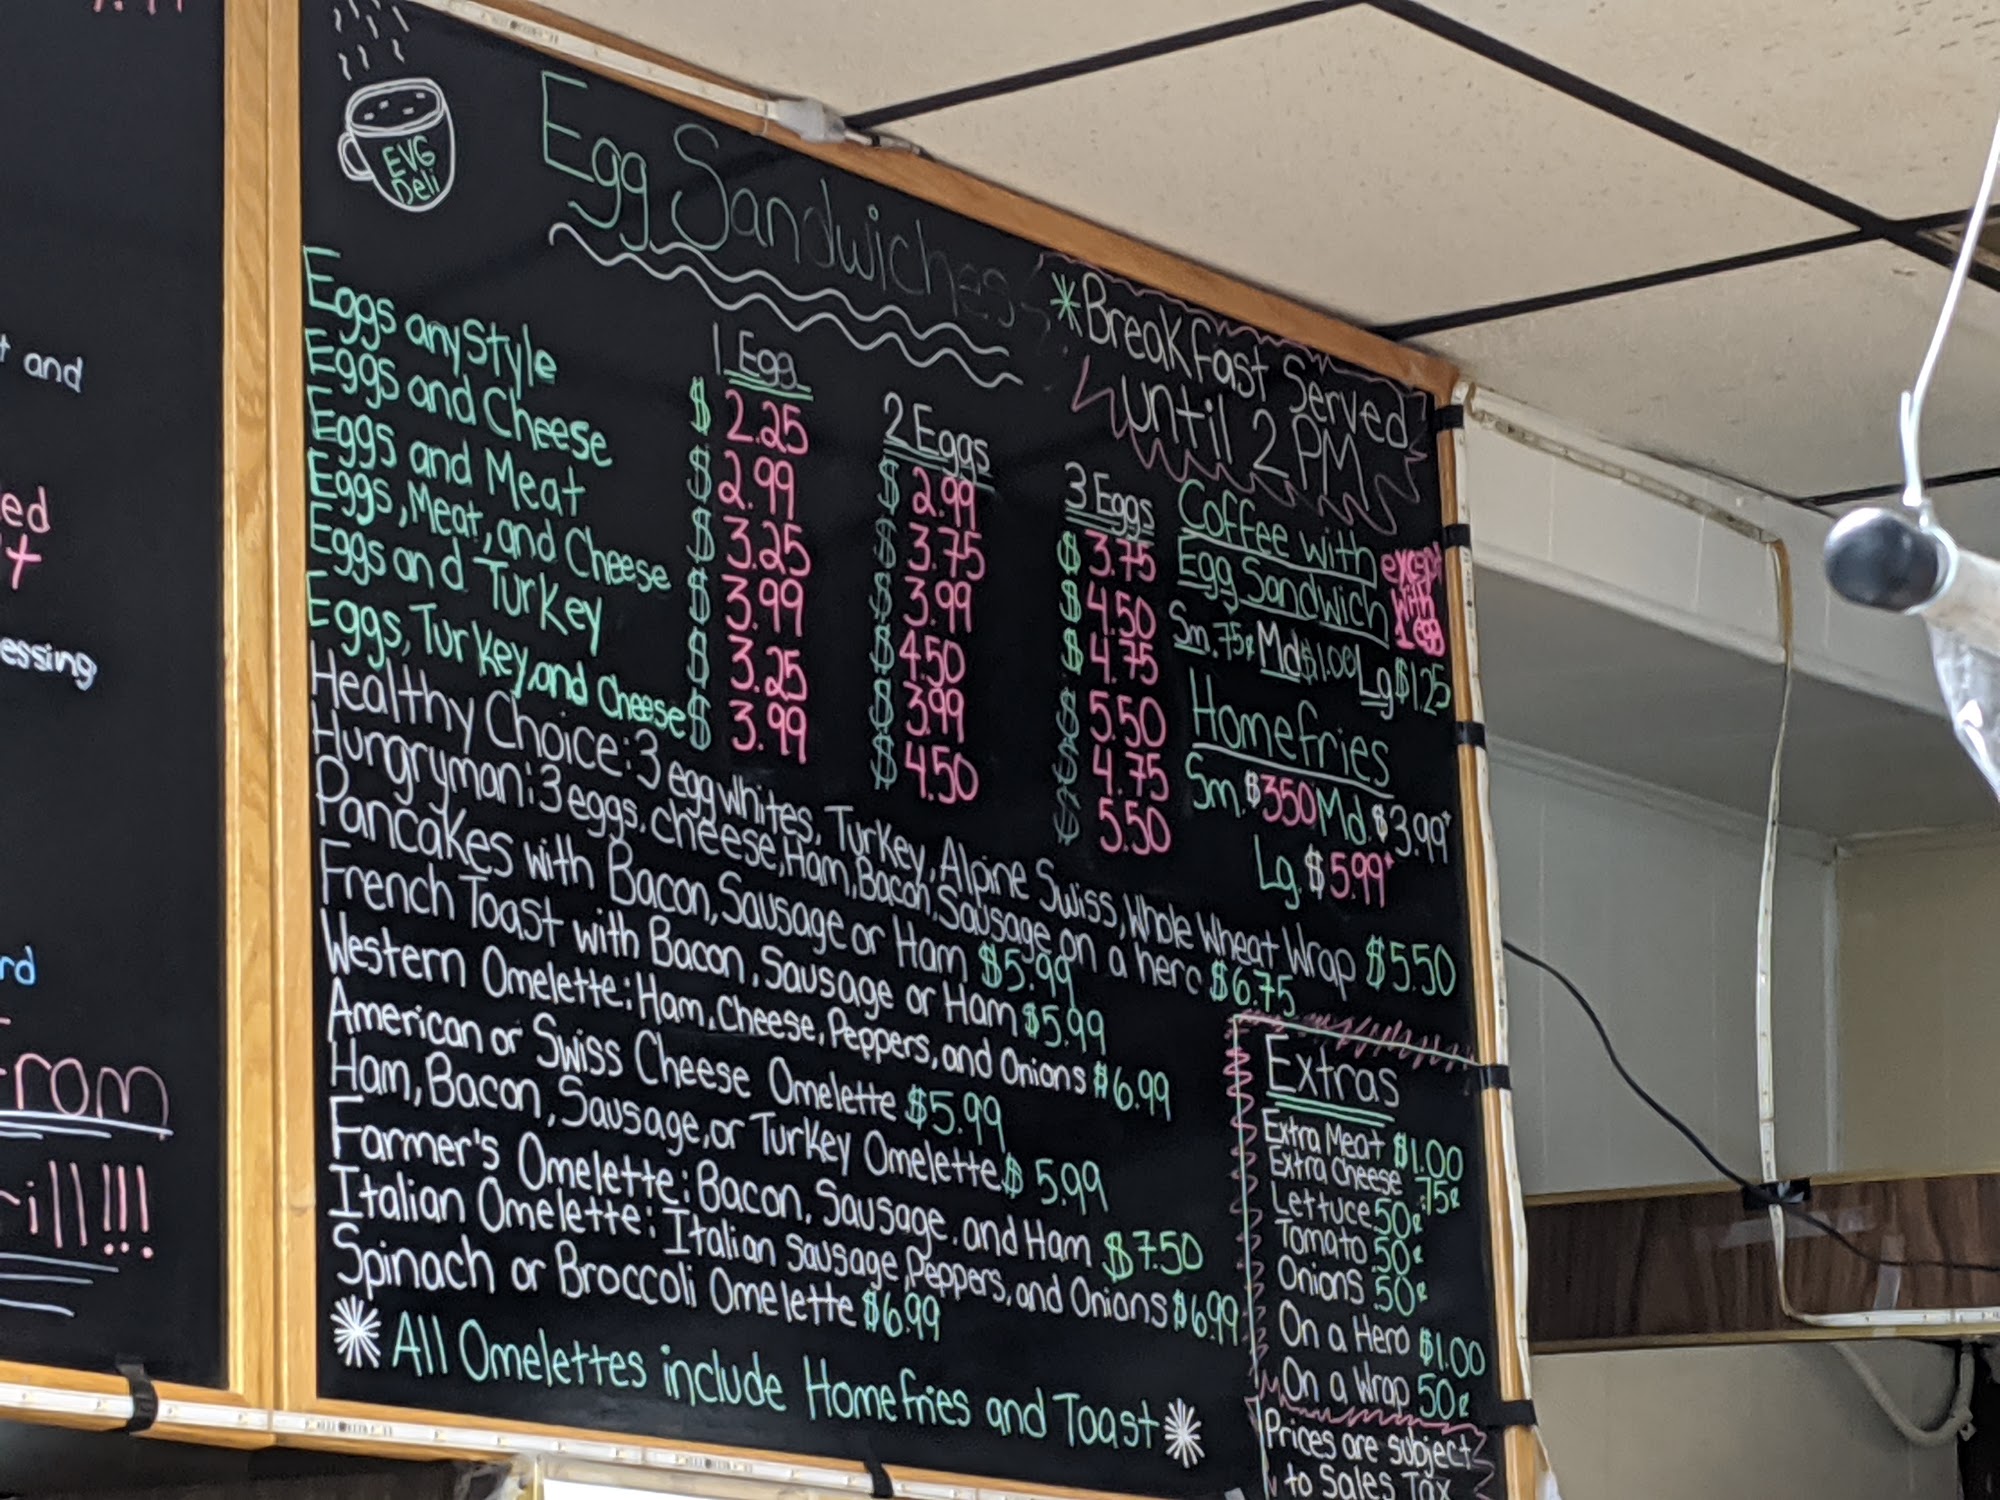 t and
ed
t
essing
rd
rom
rill!!!
EVG
Deli
Egg Sandwiches
*Breakfast Served
until 2 PM
1 Egg
2 Eggs
3 Eggs
Eggs any Style $2.25 $2.99 $3.75
Eggs and Cheese $2.99 $3.75 $4.50
Eggs and Meat $3.25 $3.99 $4.75
Eggs, Meat, and Cheese $3.99 $4.50 $5.50
Eggs and Turkey $3.25 $3.99 $4.75
Eggs, Turkey, and Cheese $3.99 $4.50 $5.50
Coffee with
Egg Sandwich
except
with
1 egg
Sm. .75¢ Md $1.00 Lg $1.25
Homefries
Sm. $3.50 Md. $3.99+
Lg. $5.99+
Healthy Choice: 3 egg whites, Turkey, Alpine Swiss, Whole Wheat Wrap $5.50
Hungryman: 3 eggs, cheese, Ham, Bacon, Sausage on a hero $6.75
Pancakes with Bacon, Sausage or Ham $5.99
French Toast with Bacon, Sausage or Ham $5.99
Western Omelette: Ham, Cheese, Peppers, and Onions $6.99
American or Swiss Cheese Omelette $5.99
Ham, Bacon, Sausage, or Turkey Omelette $5.99
Farmer's Omelette: Bacon, Sausage, and Ham $7.50
Italian Omelette: Italian Sausage, Peppers, and Onions $6.99
Spinach or Broccoli Omelette $6.99
All Omelettes include Homefries and Toast
Extras
Extra Meat $1.00
Extra Cheese .75¢
Lettuce .50¢
Tomato .50¢
Onions .50¢
On a Hero $1.00
On a Wrap 50¢
Prices are subject
to Sales Tax